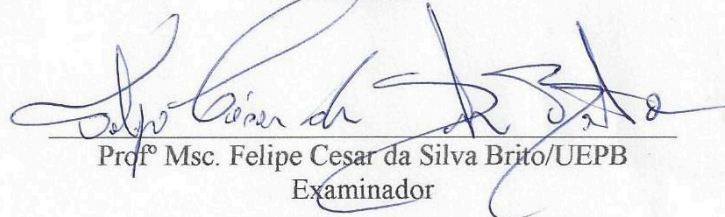 Felipe César da Silva Brito
Profº Msc. Felipe Cesar da Silva Brito/UEPB
Examinador